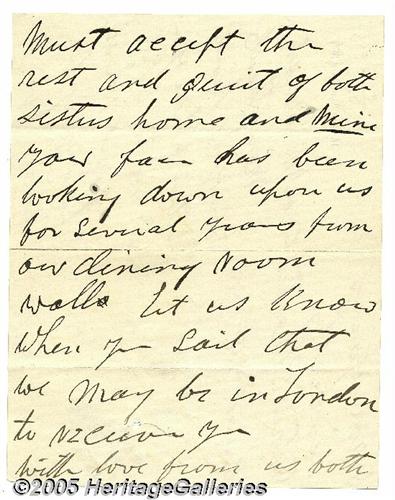 Must accept the
rest and quiet of both
sisters home and Mine
Your face has been
looking down upon us
for several years from
our dining room
walls Let us know
when you sail that
we may be in London
to receive you
with love from us both
©2005 HeritageGalleries